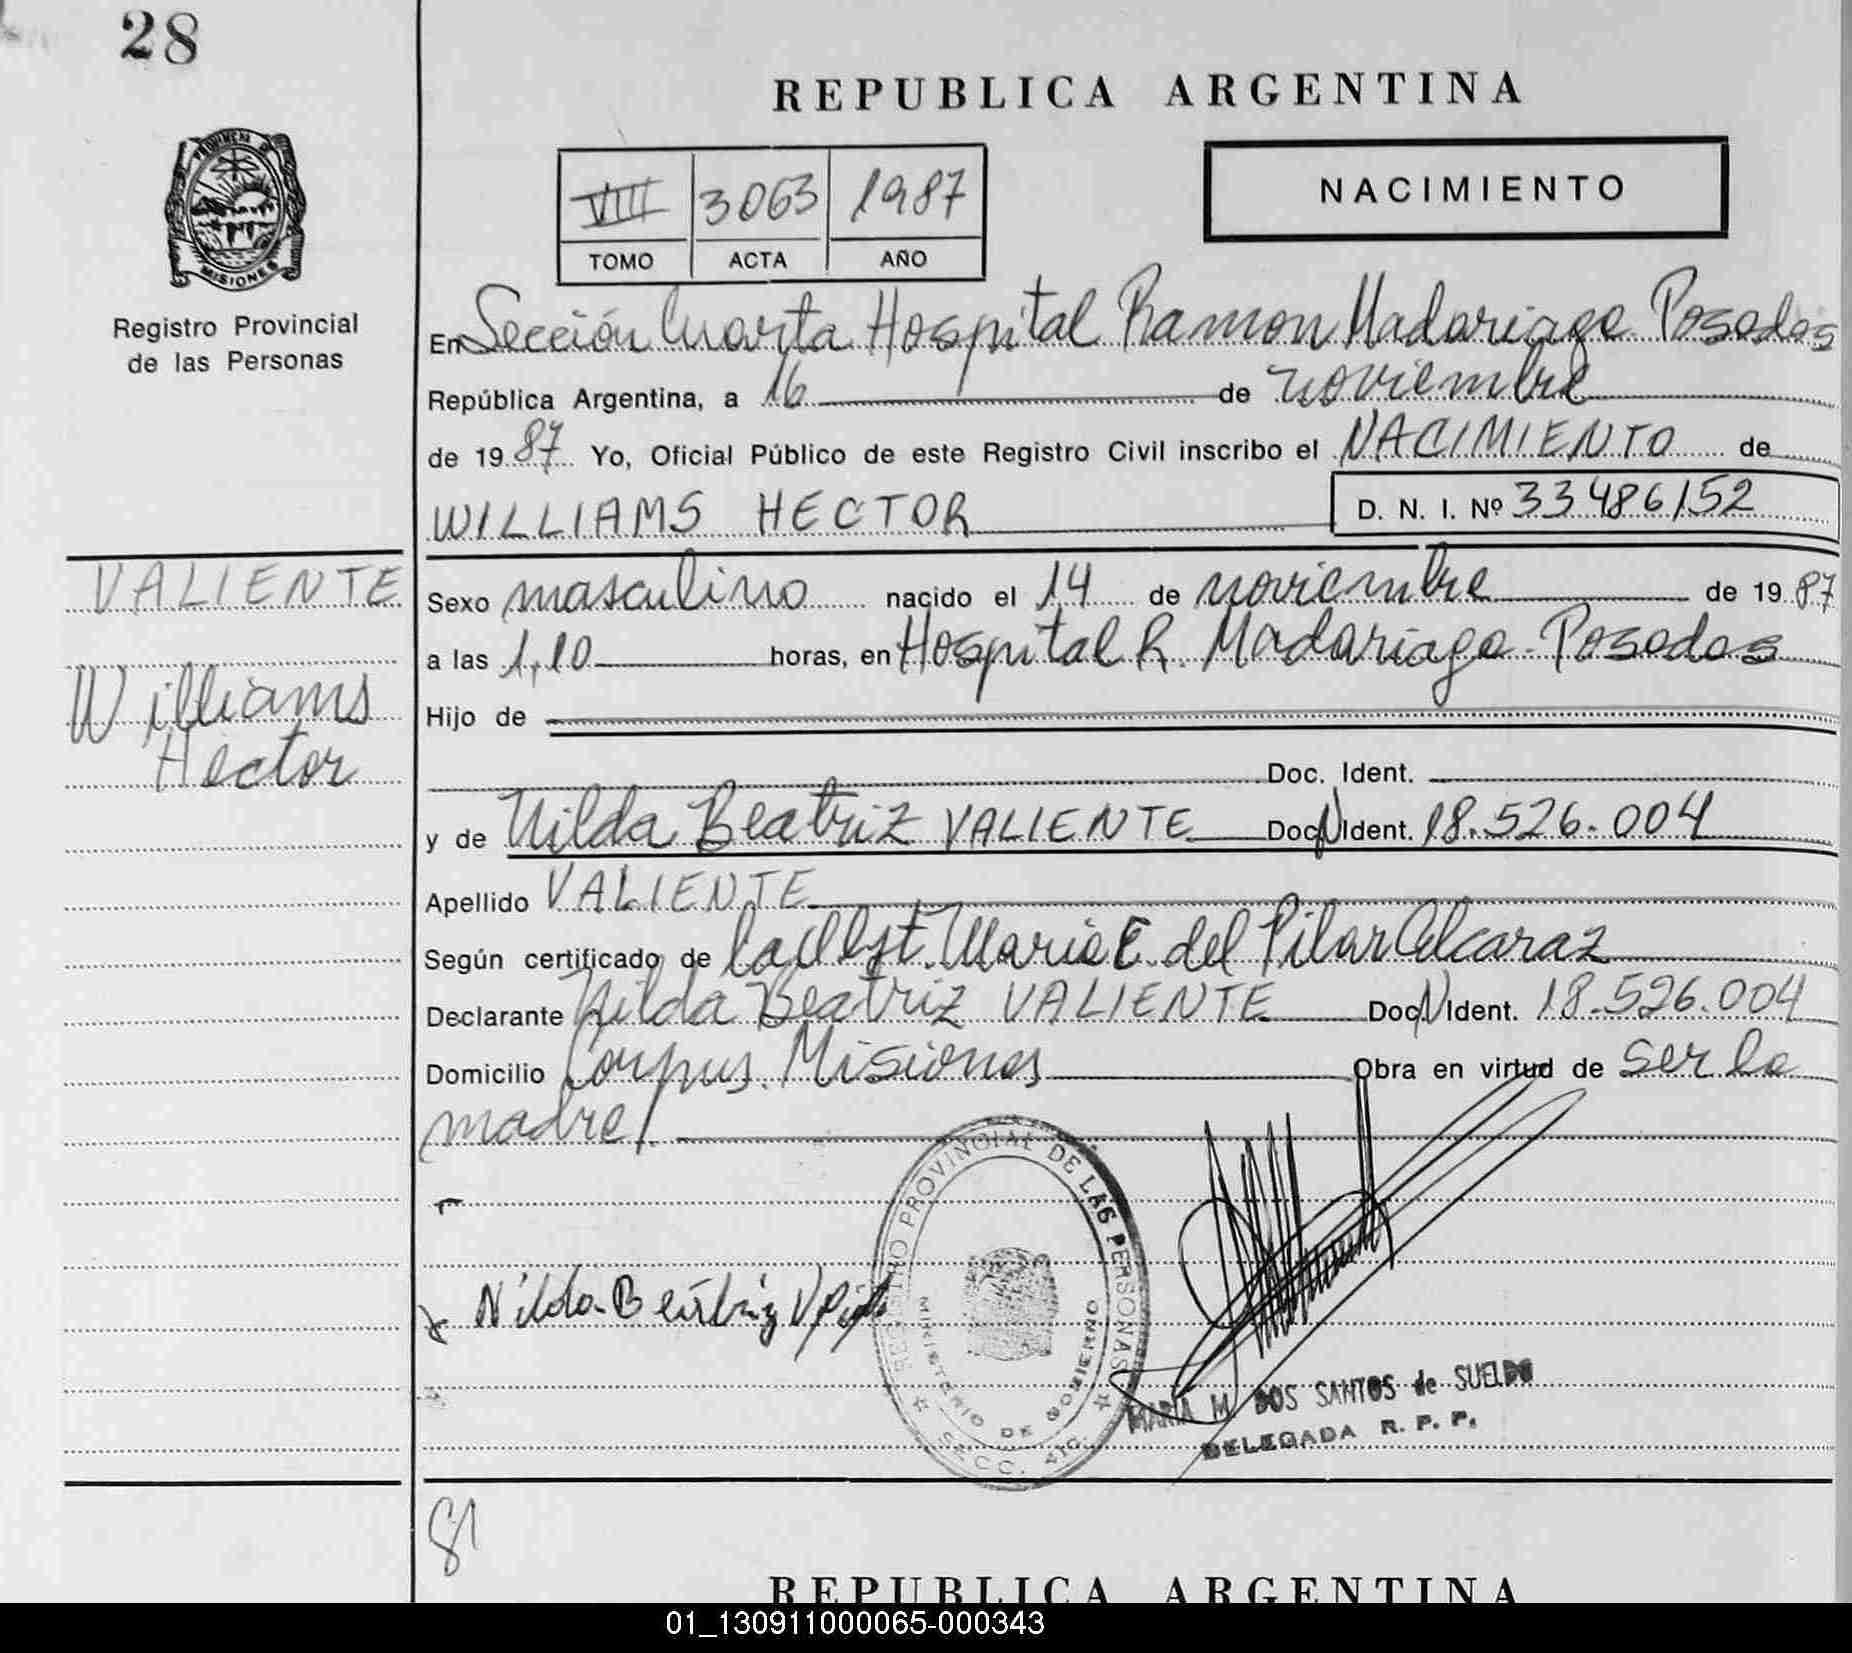 28
REPUBLICA ARGENTINA
PROVINCIA DE
MISIONES
Registro Provincial
de las Personas
VIII 3063 1987
TOMO ACTA AÑO
NACIMIENTO
En Sección Cuarta Hospital Ramon Madariaga Posadas
República Argentina, a 16 de noviembre
de 1987 Yo, Oficial Público de este Registro Civil inscribo el NACIMIENTO de
WILLIAMS HECTOR D. N. I. Nº 33486152
VALIENTE
Williams
Hector
Sexo masculino nacido el 14 de noviembre de 1987
a las 1,10 horas, en Hospital R. Madariaga - Posadas
Hijo de
Doc. Ident.
y de Nilda Beatriz VALIENTE Doc. N Ident. 18.526.004
Apellido VALIENTE
Según certificado de la Obst. Maria E. del Pilar Alcaraz
Declarante Nilda Beatriz VALIENTE Doc. N Ident. 18.526.004
Domicilio Corpus. Misiones Obra en virtud de ser la
madre/.
Nilda Beatriz
REGISTRO PROVINCIAL DE LAS PERSONAS
MINISTERIO DE GOBIERNO
SECC. 4ta.
MARIA M. DOS SANTOS de SUELDO
DELEGADA R. P. P.
81
REPUBLICA ARGENTINA
01_130911000065-000343